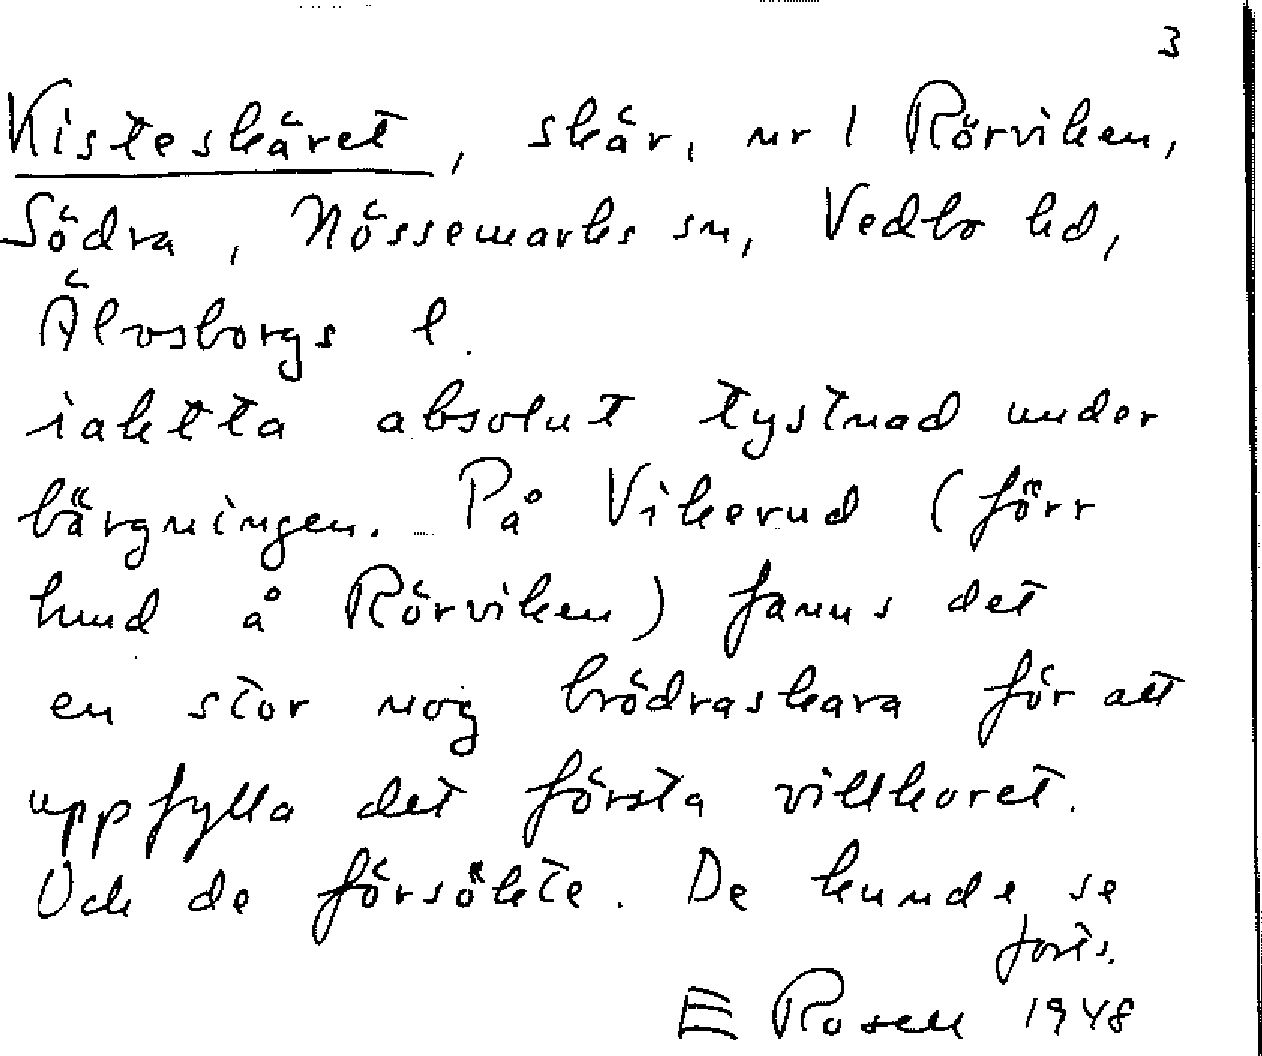 3
Kisteskäret, skär, nr 1 Rörviken,
Södra, Nössemarks sn, Vedbo hd,
Älvsborgs l.
iaktta absolut tystnad under
bärgningen. På Vikerud (förr
hmd å Rörviken) fanns det
en stor nog brödraskara för att
uppfylla det första villkoret.
Och de försökte. De kunde se
forts.
E Rosell 1948